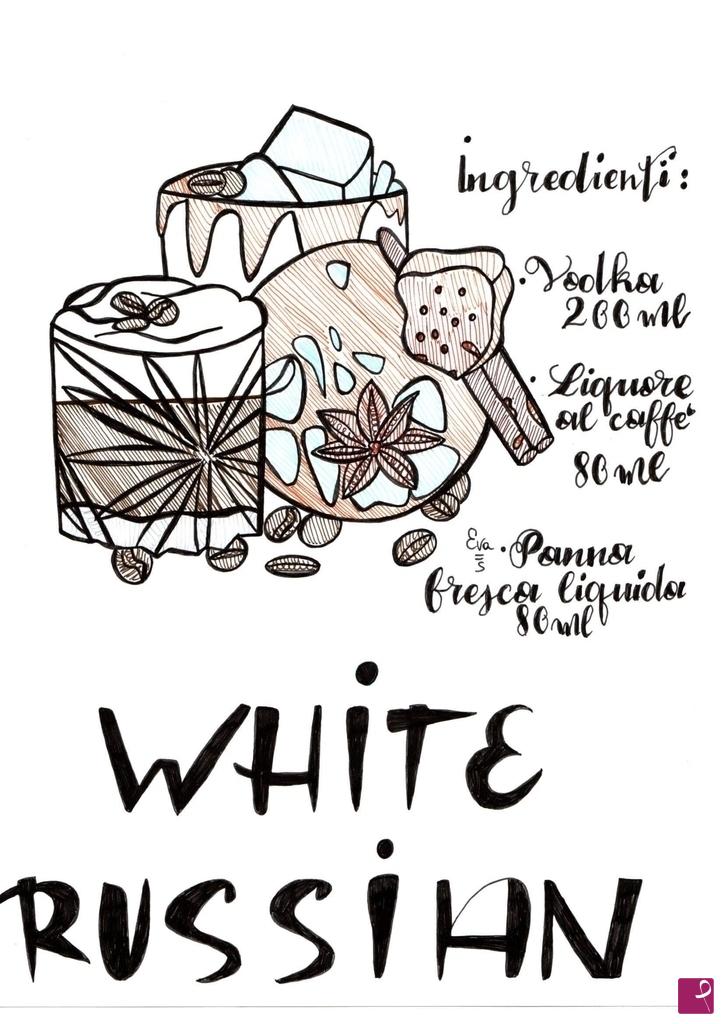 Ingredienti:
· Vodka
200 ml
· Liquore
al caffe'
80 ml
Eva
S
· Panna
fresca liquida
80 ml
WHiTE
RUSSiAN